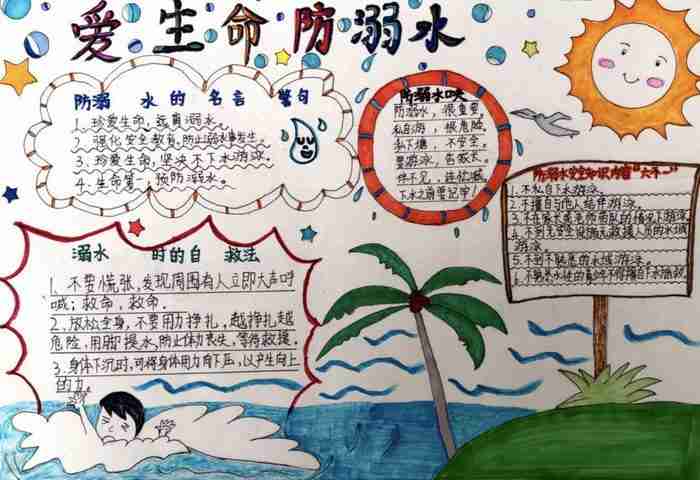 爱生命防溺水
防溺 水的名言 警句
1、珍爱生命,远离溺水。
2、强化安全教育,防止溺水事发生。
3、珍爱生命,坚决不下水游泳。
4、生命第一,预防溺水。
防溺水口诀
防溺水,很重要
私自游,很危险。
私下塘,不安全。
要游泳,告家长。
伴不见,连忙喊。
下水之前要记牢!
防溺水安全知识内容"六不一"
1.不私自下水游泳。
2.不擅自与他人结伴游泳。
3.不在无家长或老师带队的情况下游泳
4.不到无安全设施无救援人员的水域
游泳。
5.不到不熟悉的水域游泳。
6.不熟悉水性的
溺水 时的自 救法
1、不要慌张,发现周围有人立即大声呼
喊:救命,救命.
2、放松全身,不要用力挣扎,越挣扎越
危险,用脚踢水,防止体力丧失,等待救援。
3、身体下沉时,可将身体用力向下压,以产生向上
的力。